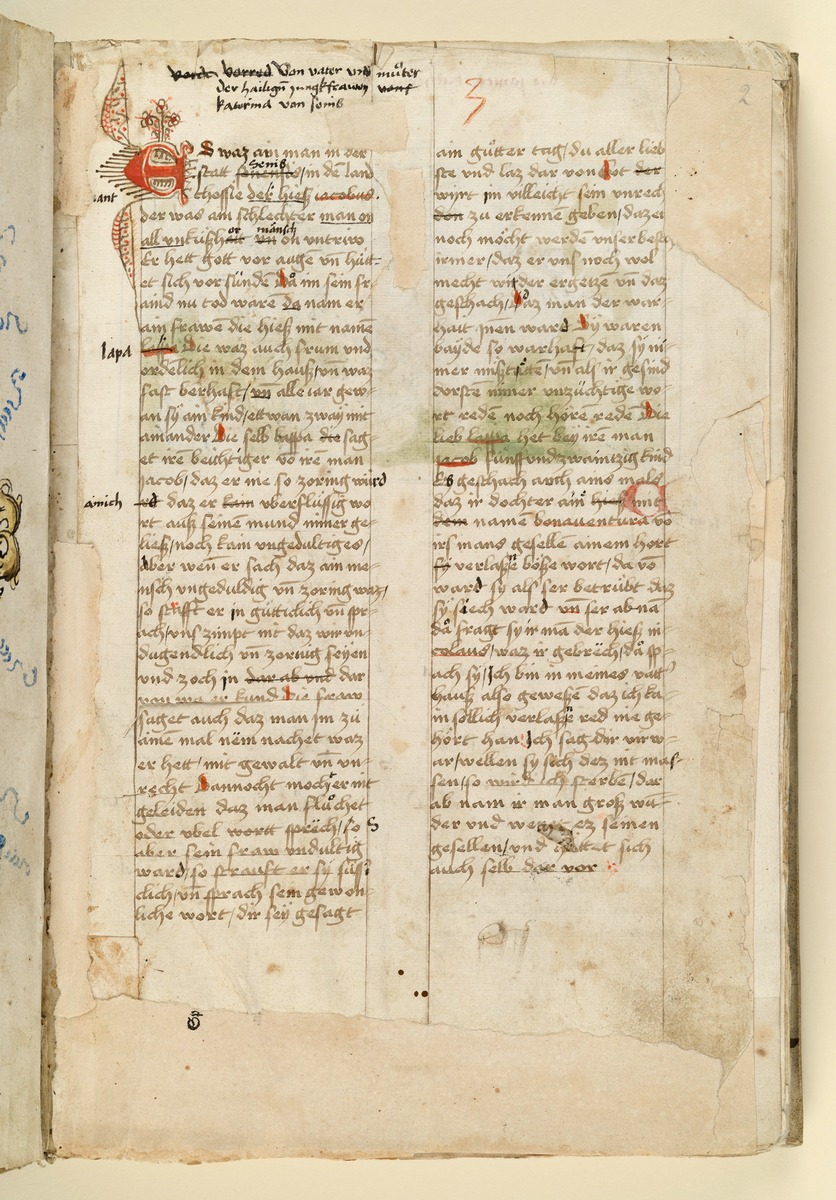 vorred Von vater vnd muͦter
der hailigñ jungkfrawen
katerina von senis
3
2
ES waz ain man in der
statt senensis senis / in dē land
thossie der hieß iacobus.
der was ain schlechter man on
Er hett gott vor augē vñ huͤt-
et sich vor sündē Da im sein fr-
aind nu tod warē da nam er
ain frawē die hieß mit namē
lapa
Die waz auch frum vnd
ordēlich in dem hauß / vñ waz
fast berhaft / vñ alle iar gew-
an sy ain kind / ettwan zway mit
ainander Die selb lappa die sag-
et irē beichtiger vō irē man
jacob / daz er nie so zoring würd
daz er kain vberflüssig wo
rt auß seinē mund nimer ge-
ließ / noch kain vngedultiges /
Aber wen er sach daz ain me-
nsch vngeduldig vñ zoring waz /
so strafft er jn gütticlich vñ spr-
ach / vns zimpt nit daz wir vn-
dugendlich vñ zornig seyen
vnd zoch jn dar ab vnd dar
Die fraw
saget auch daz man jm zü
ainē mal nēm nachet waz
er hett / mit gewalt vñ vn-
recht Dannocht mocht er nit
geleiden daz man fluͦchet
oder vbel wortt sprēch / so
aber sein fraw vndultig
ward / so strauft er sy süss-
clich / vñ sprach sein gewon-
liche wort / dir sey gesagt
ain guͦtter tag / du aller lieb
ste vnd laz dar von got der
wyrt jm villeicht sein vnrech
zu erkenē geben / dazer
noch moͤcht werdē vnser besch
irmer / daz er vns noch wol
mecht wider ergetzen vñ daz
geschach / Daz man der war-
hait jnen ward Sy waren
bayde so warhaft / daz sy ni-
mer / vñ als ir gesind
dorsten nimer vnzüchtige wo-
rt redē noch hörē redē Die
lieb lappa het bey irē man
jacob fünffvndzwaintzig kind
Es geschach auch ains mals
daz ir dochter ainͤ mit
dem namē bonauentura vō
irs mans gesellen ainem hort
verlassē böße wort / da vō
ward sy als ser betruͤbt daz
sy siech ward vñ ser ab na
da fragt sy ir mā der hieß ni-
colaus / waz ir gebrēch / da sp-
ach sy / Ich bin in meines vatt
hauß also geweßen daz ich ka-
in söllich verlassē red nie ge-
hört han Ich sag dir virw-
ar / wellen sy sich dez nit mas-
sen / so wird ich sterbē / dar
ab nam ir man groß wu-
der vnd ez seinen
gesellen / vnd sich
auch selb dar vor